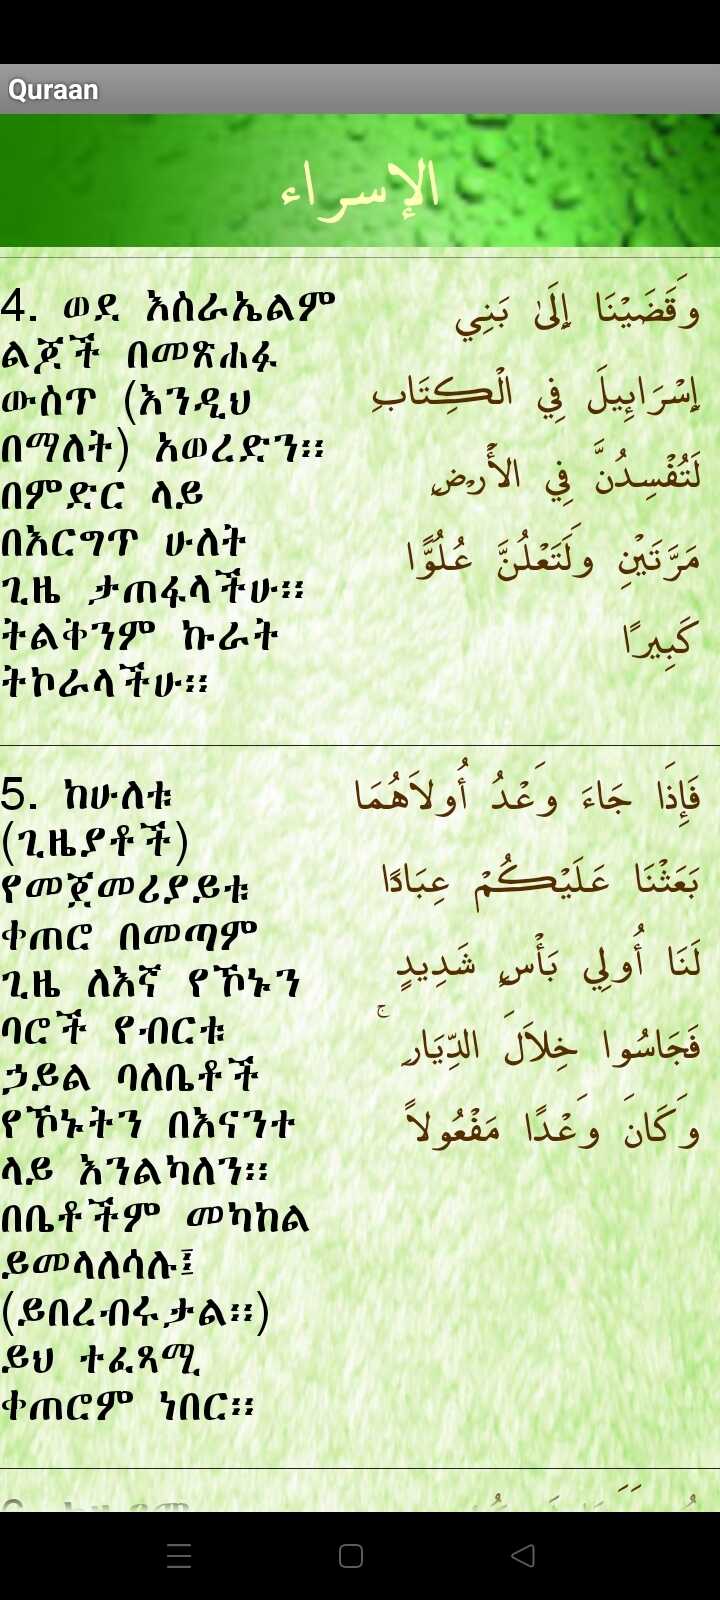 Quraan
الإسراء
4. ወደ እስራኤልም
ልጆች በመጽሐፉ
ውስጥ (እንዲህ
በማለት) አወረድን፡፡
በምድር ላይ
በእርግጥ ሁለት
ጊዜ ታጠፋላችሁ፡፡
ትልቅንም ኩራት
ትኮራላችሁ፡፡
وَقَضَيْنَا إِلَىٰ بَنِي
إِسْرَائِيلَ فِي الْكِتَابِ
لَتُفْسِدُنَّ فِي الأَرْضِ
مَرَّتَيْنِ وَلَتَعْلُنَّ عُلُوًّا
كَبِيرًا
5. ከሁለቱ
(ጊዜያቶች)
የመጀመሪያይቱ
ቀጠሮ በመጣም
ጊዜ ለእኛ የኾኑን
ባሮች የብርቱ
ኃይል ባለቤቶች
የኾኑትን በእናንተ
ላይ እንልካለን፡፡
በቤቶችም መካከል
ይመላለሳሉ፤
(ይበረብሩታል፡፡)
ይህ ተፈጻሚ
ቀጠሮም ነበር፡፡
فَإِذَا جَاءَ وَعْدُ أُولاَهُمَا
بَعَثْنَا عَلَيْكُمْ عِبَادًا
لَنَا أُولِي بَأْسٍ شَدِيدٍ
فَجَاسُوا خِلاَلَ الدِّيَارِ ۚ
وَكَانَ وَعْدًا مَفْعُولاً